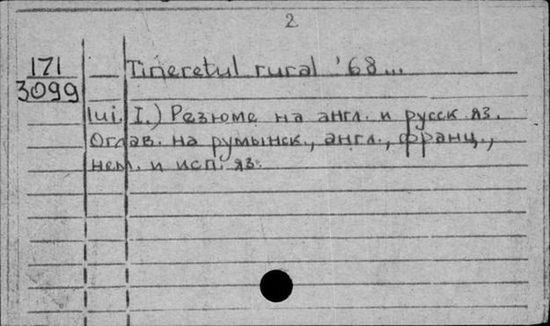 2
171
3099
Tineretul rural '68...
lui I.) Резюме на англ. и русск яз.
Оглав. на румынск., англ., франц.,
нем. и исп. яз.